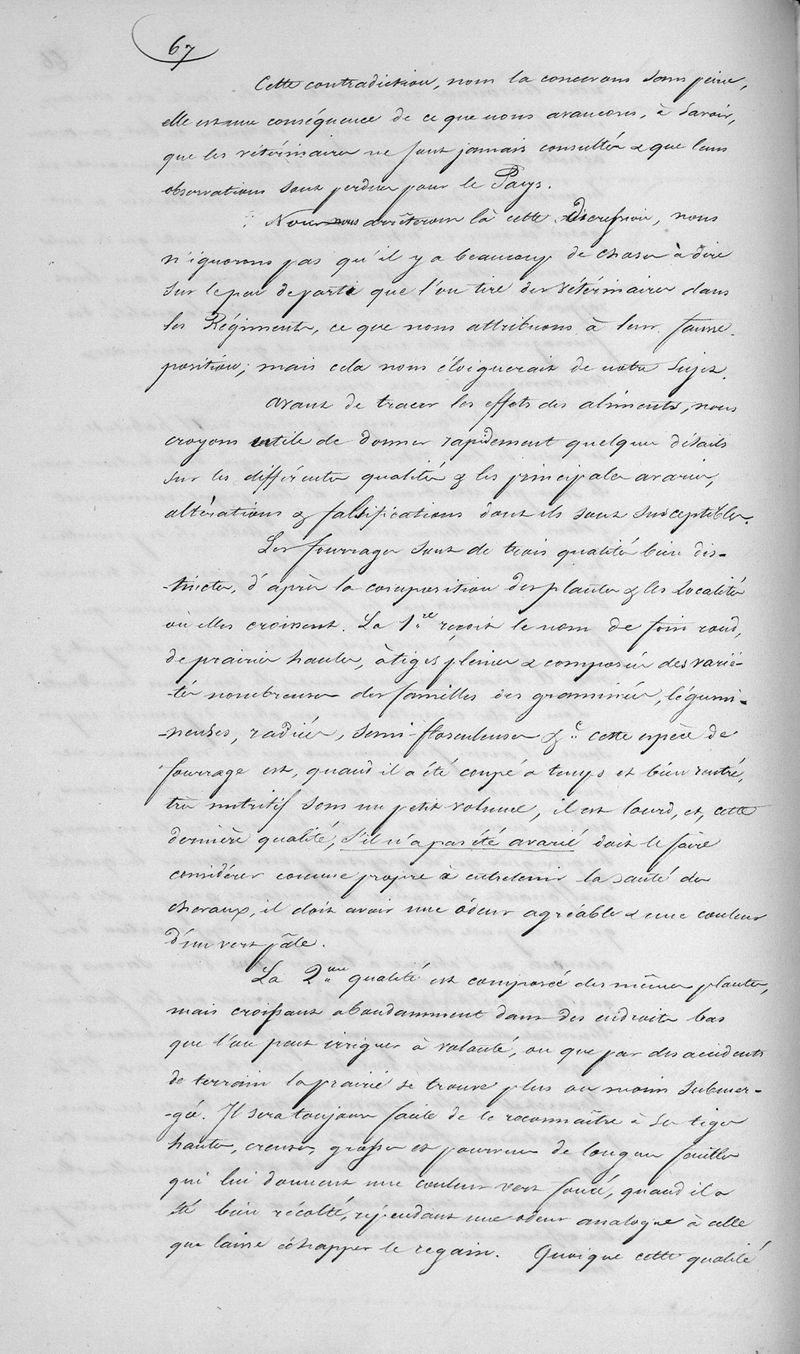 67
Cette contradiction, nous la concevons sans peine,
elle est une conséquence de ce que nous avancons, à savoir,
que les vétérinaires ne sont jamais consultés & que leurs
observations sont perdues pour le Pays.
Nous nous arrêterons là cette Discussion, nous
n'ignorons pas qu'il y a beaucoup de choses à dire
sur le peu de parti que l'on tire des vétérinaires dans
les Régiments, ce que nous attribuons à leur fausse
position; mais cela nous éloignerait de notre sujet.
Avant de tracer les effets des aliments, nous
croyons utile de donner rapidement quelques détails
sur les différentes qualités & les principales avaries,
altérations & falsifications dont ils sont susceptibles.
Les fourrages sont de trois qualités bien dis-
-tinctes, d'après la composition des plantes & les localités
où elles croissent. La 1.re reçoit le nom de foin rond,
de prairies hautes, à tiges pleines & composées des varié-
-tés nombreuses des familles des graminées, légumi-
-neuses, radiées, semi-flosculeuses &c. cette espèce de
fourrage est, quand il a été coupé à temps et bien rentré,
très nutritif sous un petit volume, il est lourd, et, cette
dernière qualité, s'il n'a pas été avarié doit le faire
considérer comme propre à entretenir la santé des
chevaux, il doit avoir une odeur agréable & une couleur
d'un vert pâle.
La 2.me qualité est composée des mêmes plantes,
mais croissant abondamment dans des endroits bas
que l'on peut irriguer à volonté, ou que par des accidents
de terrain la prairie se trouve plus ou moins submer-
-gée. Il sera toujours facile de le reconnaître à ses tiges
hautes, creuses, grosses et pourvues de longues feuilles
qui lui donnent une couleur vert foncé, quand il a
été bien récolté, répendant une odeur analogue à celle
que laisse échapper le regain. Quoique cette qualité